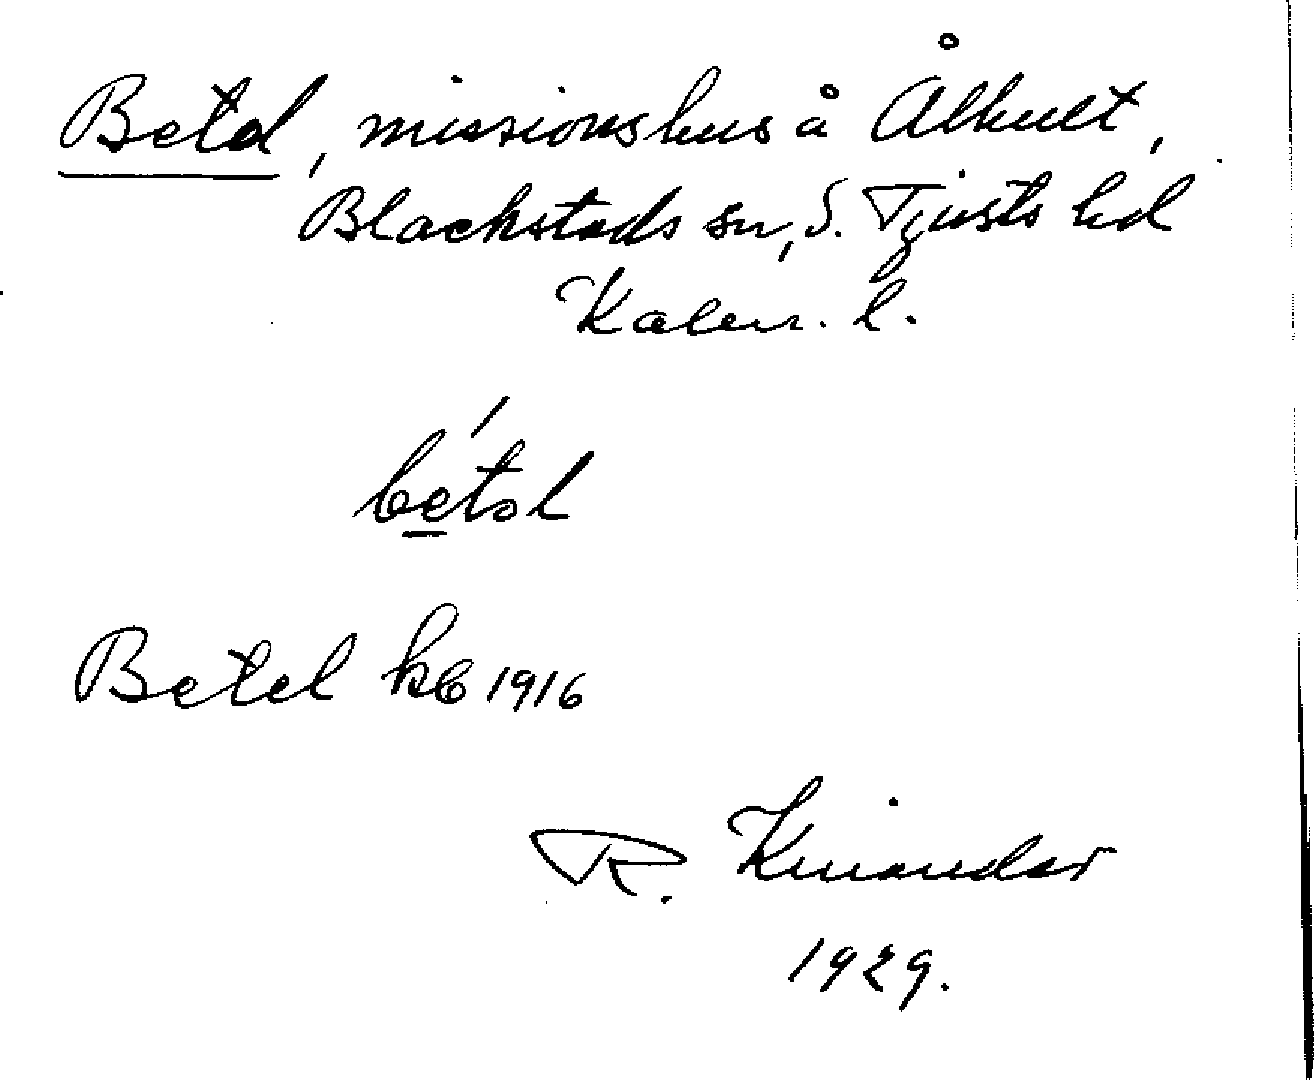 Betel, missionshus å Ålhult,
Blackstads sn, S. Tjusts hd
Kalm. l.
betəl
Betel kb 1916
R. Kinander
1929.